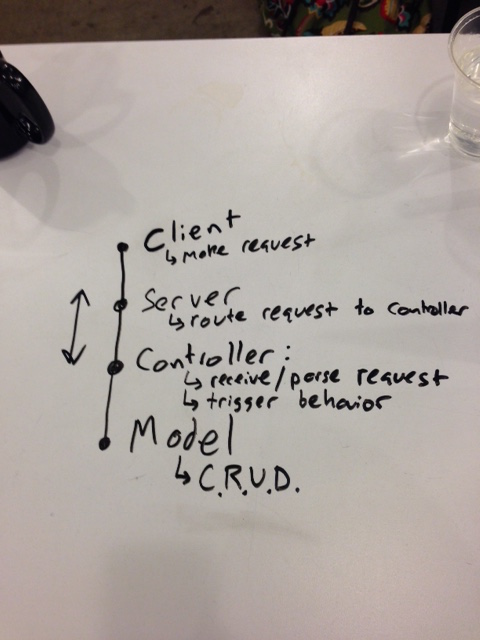 Client
↳ make request
Server
↳ route request to controller
Controller:
↳ receive/parse request
↳ trigger behavior
Model
↳ C.R.U.D.